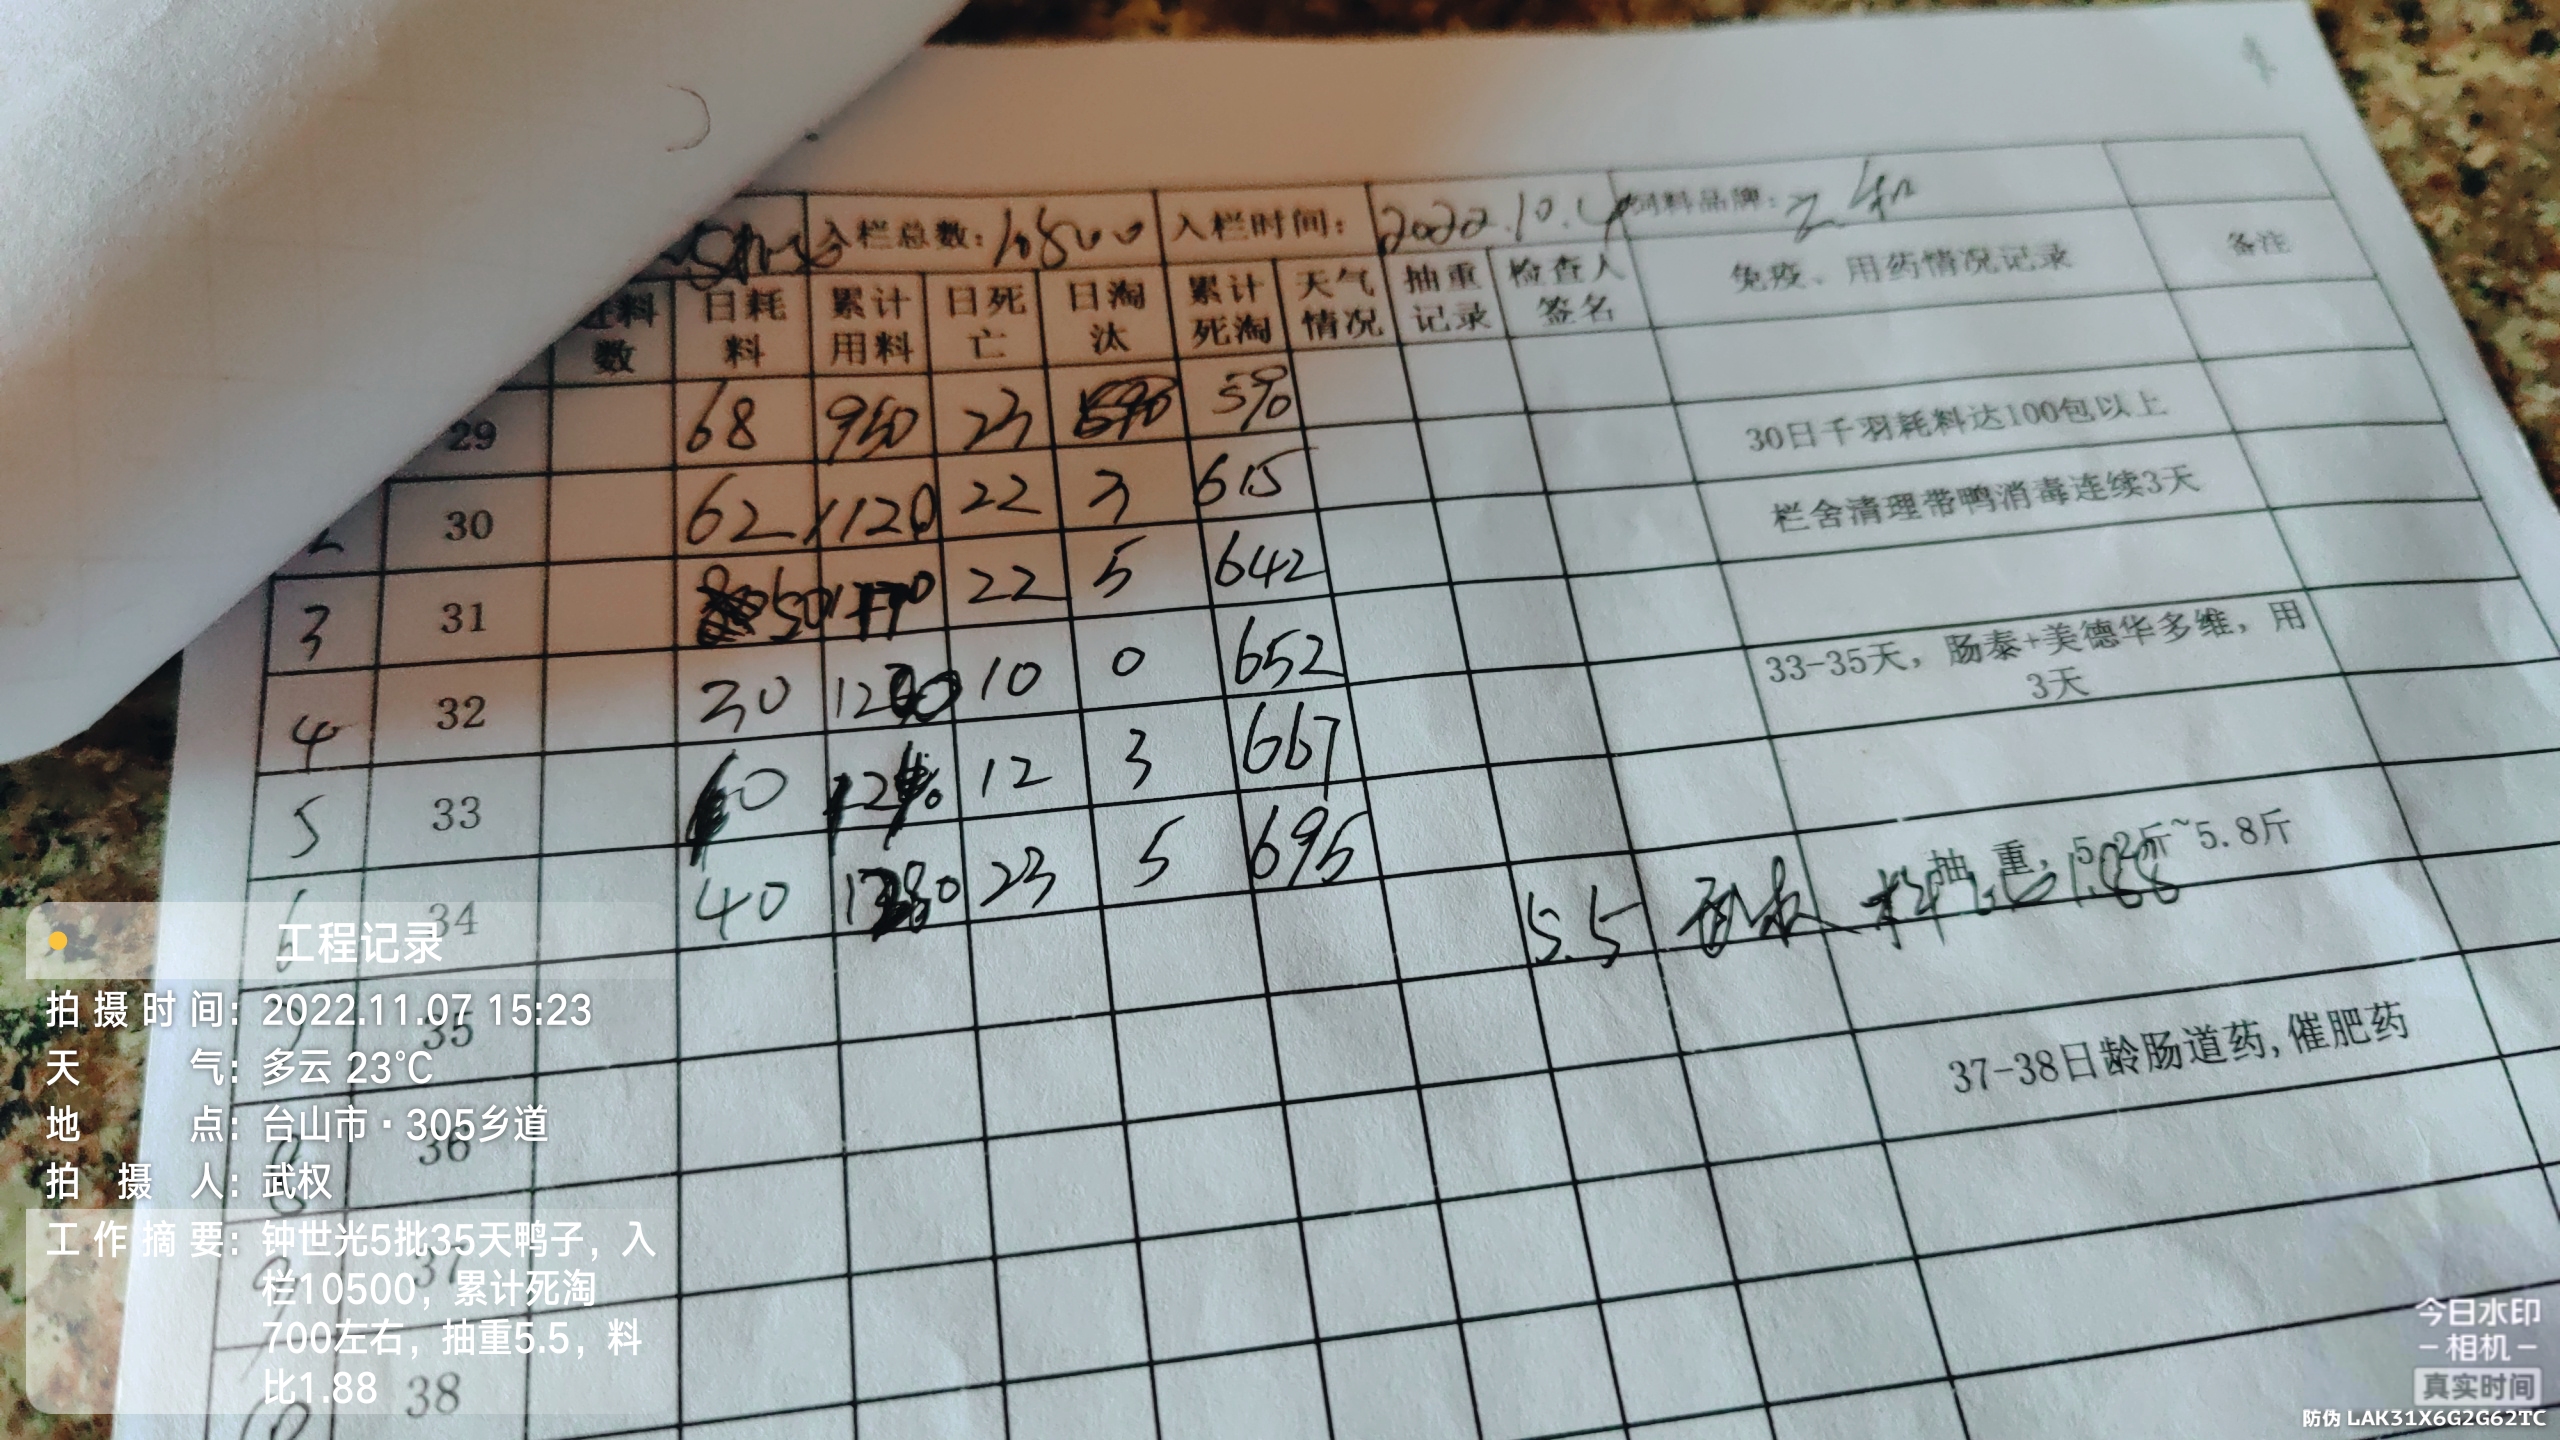 入栏总数: 10500 入栏时间: 2022.10.4 饲料品牌:
料数 日耗料 累计用料 日死亡 日淘汰 累计死淘 天气情况 抽重记录 检查人签名 免疫、用药情况记录 备注
29 68 950 23 590
30日千羽耗料达100包以上
2 30 62 1120 22 3 615
栏舍清理带鸭消毒连续3天
3 31 50 22 5 642
4 32 30 10 0 652
33-35天，肠泰+美德华多维，用3天
5 33 12 3 667
6 34 40 23 5 695
抽重，5.2斤~5.8斤
5.5 武权 料比1.88
35
36
37-38日龄肠道药,催肥药
37
38
工程记录
拍摄时间: 2022.11.07 15:23
天气: 多云 23℃
地点: 台山市·305乡道
拍摄人: 武权
工作摘要: 钟世光5批35天鸭子，入
栏10500，累计死淘
700左右，抽重5.5，料
比1.88
今日水印
-相机-
真实时间
防伪 LAK31X6G2G62TC